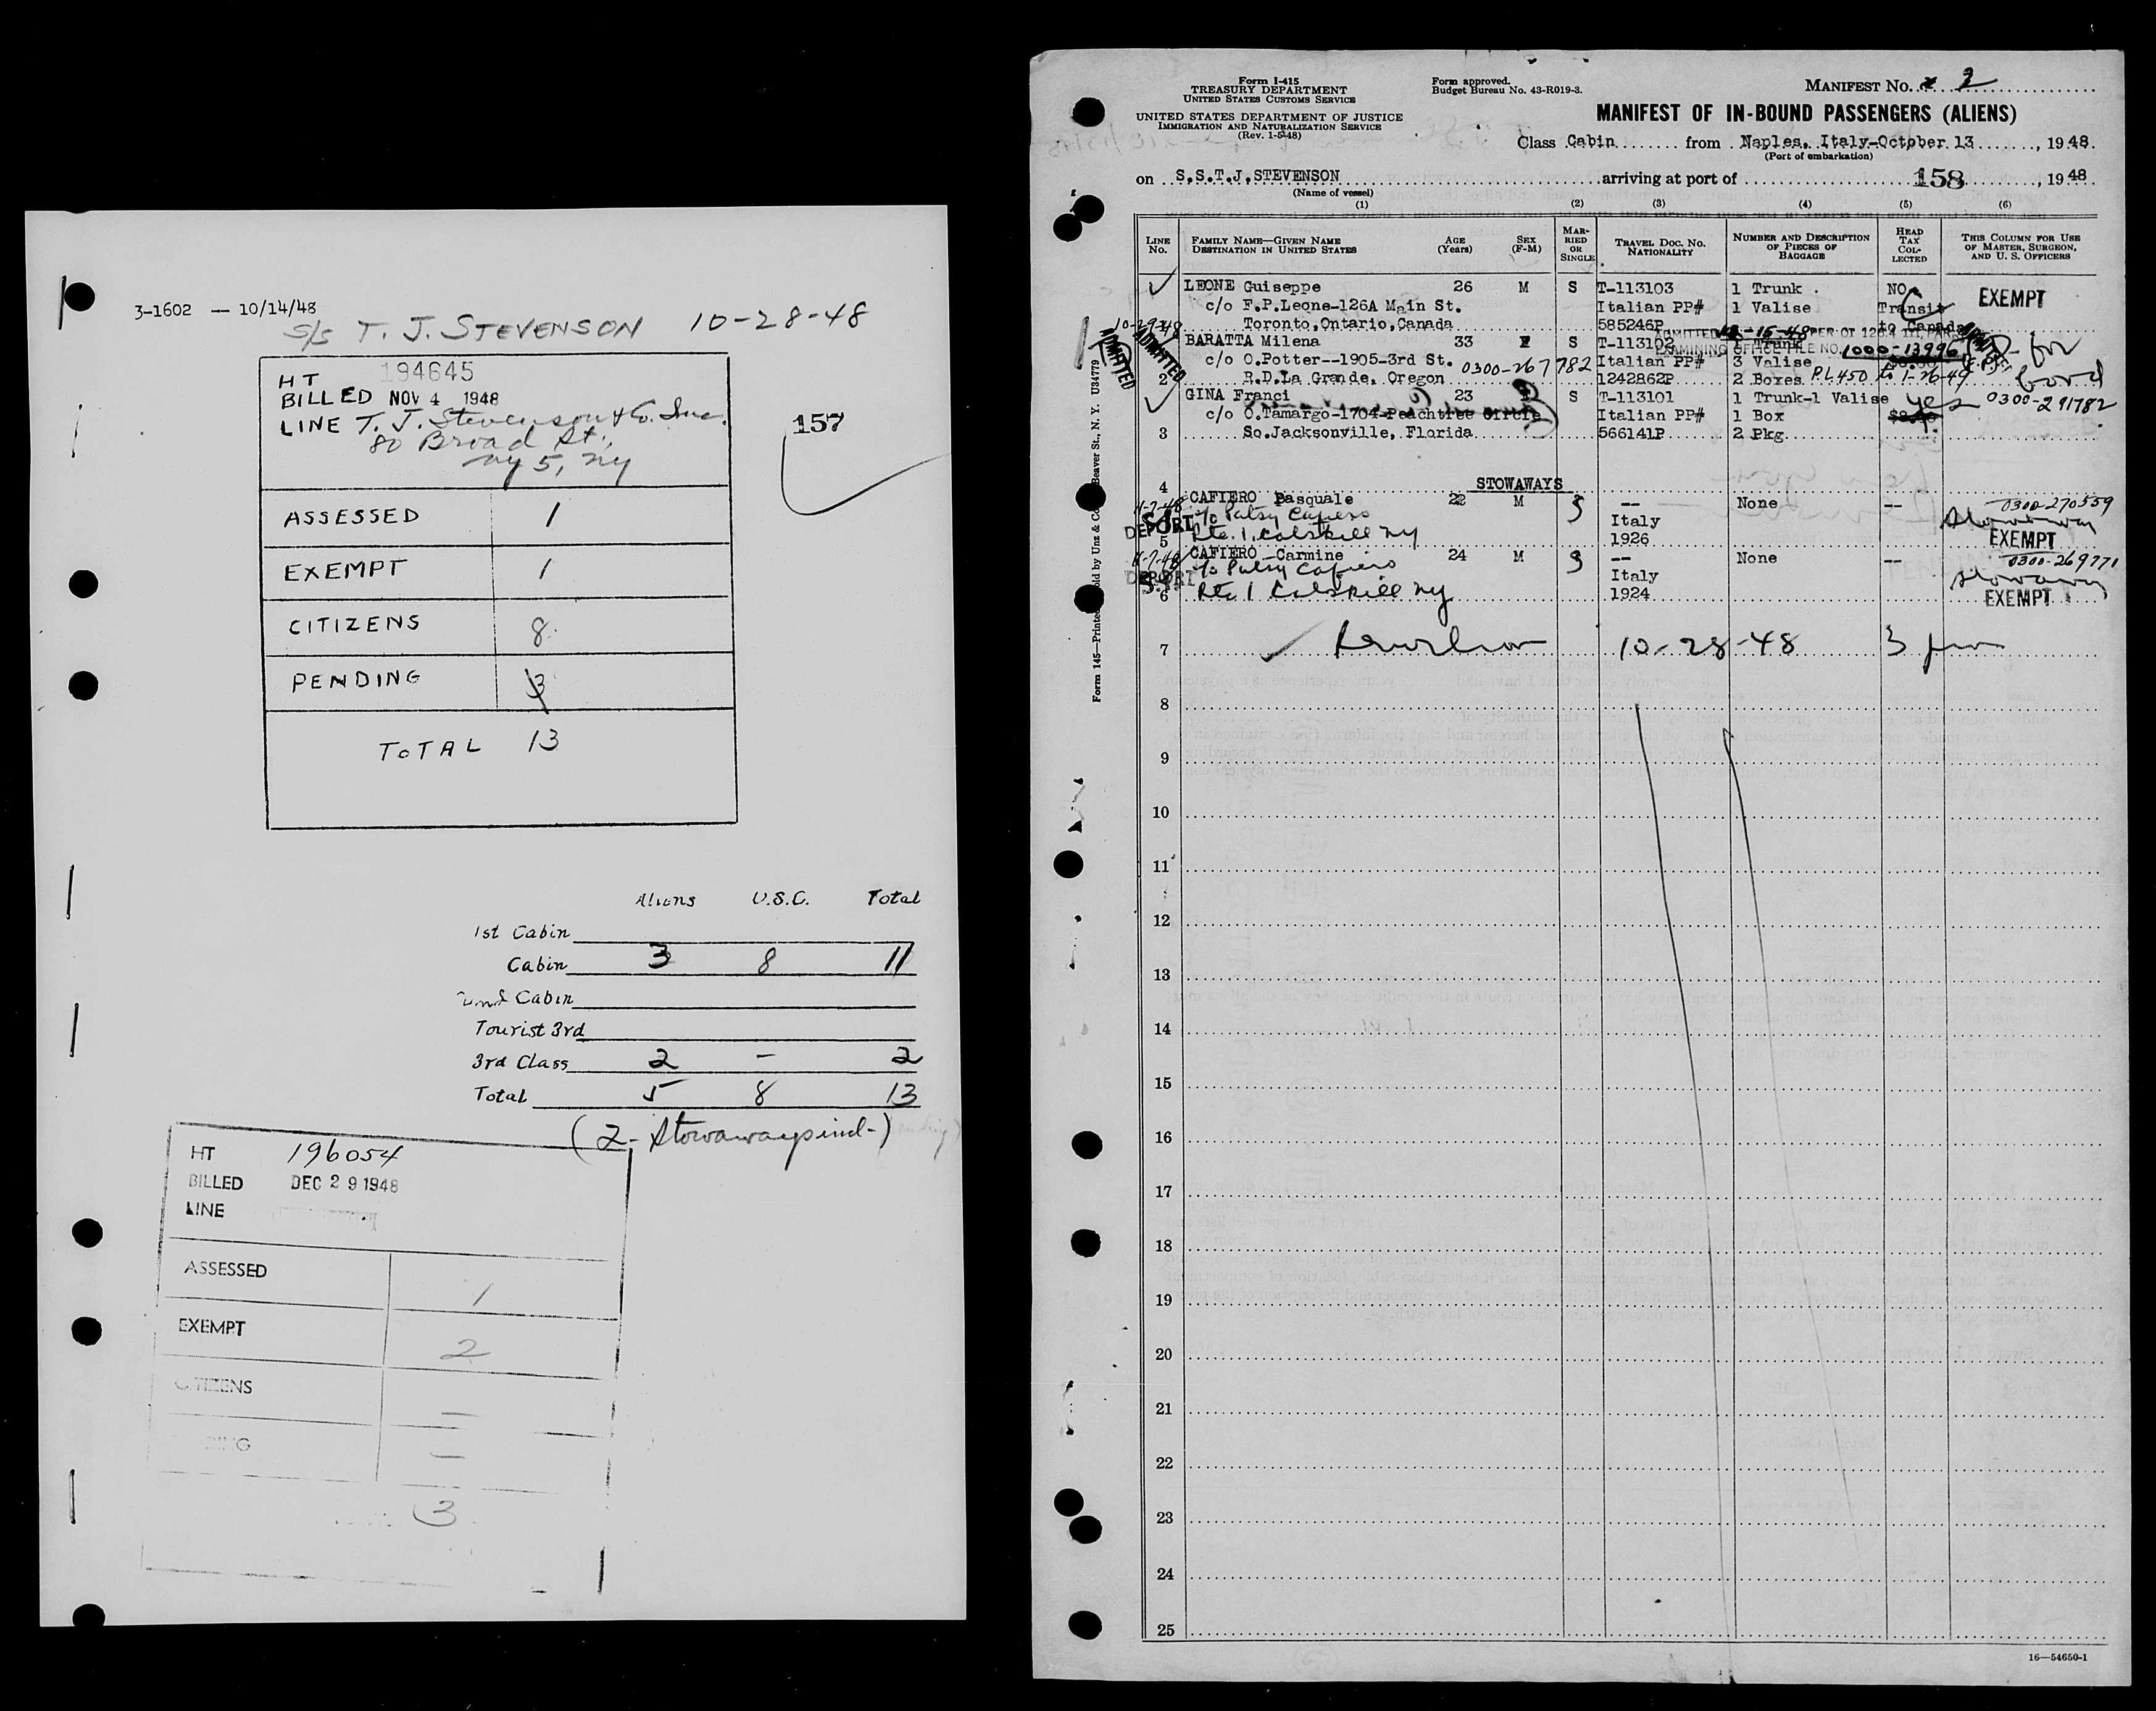 3-1602 — 10/14/48
S/S T. J. STEVENSON 10-28-48
HT 194645
BILLED NOV 4 1948
LINE T. J. Stevenson & Co. Inc.
80 Broad St.,
NY 5, NY
157
ASSESSED 1
EXEMPT 1
CITIZENS 8
PENDING 3
TOTAL 13
Aliens U.S.C. Total
1st Cabin
Cabin 3 8 11
2nd Cabin
Tourist 3rd
3rd Class 2 - 2
Total 5 8 13
(2- Stowaways incl-)
HT 196054
BILLED DEC 29 1948
LINE
ASSESSED 1
EXEMPT 2
CITIZENS —
—
3
Form I-415
TREASURY DEPARTMENT
UNITED STATES CUSTOMS SERVICE
UNITED STATES DEPARTMENT OF JUSTICE
IMMIGRATION AND NATURALIZATION SERVICE
(Rev. 1-5-48)
Form approved.
Budget Bureau No. 43-R019-3.
MANIFEST No. 2
MANIFEST OF IN-BOUND PASSENGERS (ALIENS)
Class Cabin from Naples, Italy-October 13, 1948.
(Port of embarkation)
on S.S.T.J.STEVENSON arriving at port of 158, 1948
(Name of vessel)
(1) (2) (3) (4) (5) (6)
LINE No. FAMILY NAME—GIVEN NAME DESTINATION IN UNITED STATES AGE (Years) SEX (F-M) MARRIED OR SINGLE TRAVEL DOC. NO. NATIONALITY NUMBER AND DESCRIPTION OF PIECES OF BAGGAGE HEAD TAX COLLECTED THIS COLUMN FOR USE OF MASTER, SURGEON, AND U. S. OFFICERS
LEONE Guiseppe 26 M S T-113103 1 Trunk NO EXEMPT
c/o F.P.Leone-126A Main St. Italian PP# 1 Valise Transit
Toronto,Ontario,Canada 585246P to Canada
10-29-48 ADMITTED
ADMITTED 12-15-48 PER OI 126.4
EXAMINING OFFICE FILE NO. 1000-13996
BARATTA Milena 33 F S T-113102 1 Trunk
c/o O.Potter--1905-3rd St. 0300-267782 Italian PP# 3 Valise for
2 R.D.La Grande, Oregon 1242862P 2 Boxes P.L 450 to 1-26-49 bond
GINA Franci 23 S T-113101 1 Trunk-1 Valise yes 0300-291782
c/o O.Tamargo-1704-Peachtree Circle Italian PP# 1 Box $8.00
3 So.Jacksonville, Florida 566141P 2 Pkg
4 STOWAWAYS
11-7-48 CAFIERO Pasquale 22 M S -- None -- 0300-270559
DEPORT c/o Patsy Cafiero Italy Stowaway
5 Rte. 1, Catskill NY 1926 EXEMPT
11-7-48 CAFIERO Carmine 24 M S -- None -- 0300-269771
DEPORT c/o Patsy Cafiero Italy Stowaway
6 Rte. 1 Catskill NY 1924 EXEMPT
7 10-28-48 3 pm
8
9
10
11
12
13
14
15
16
17
18
19
20
21
22
23
24
25
16—54650-1